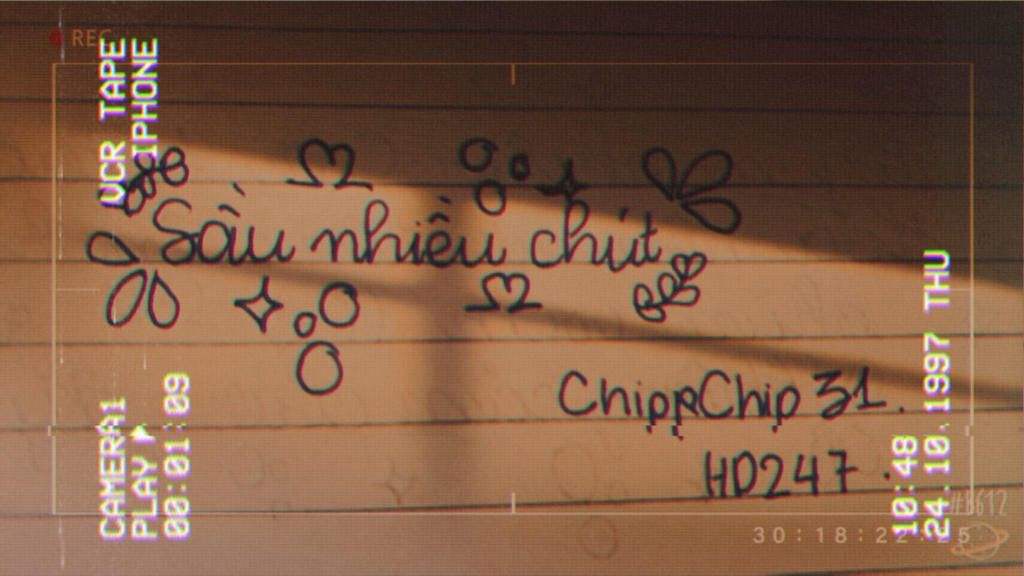 REC
VCR TAPE
IPHONE
Sầu nhiều chút
ChippChip 31.
HD247.
CAMERA1
PLAY
00:01:09
10:48
24.10.1997 THU
#B612